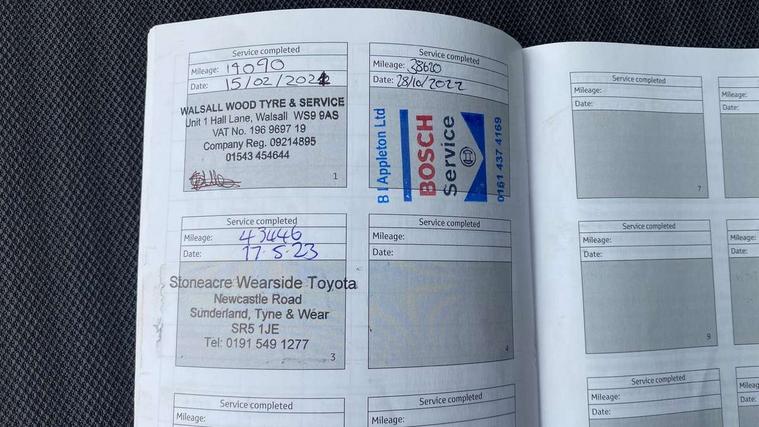 Service completed
Mileage: 19090
Date: 15/02/2022
WALSALL WOOD TYRE & SERVICE
Unit 1 Hall Lane, Walsall WS9 9AS
VAT No. 196 9697 19
Company Reg. 09214895
01543 454644
1
Service completed
Mileage: 28620
Date: 28/10/2022
B I Appleton Ltd
BOSCH
Service
0161 437 4169
Service completed
Mileage: 43446
Date: 17.5.23
Stoneacre Wearside Toyota
Newcastle Road
Sunderland, Tyne & Wear
SR5 1JE
Tel: 0191 549 1277
3
Service completed
Mileage:
Date:
4
Service completed
Mileage:
Service completed
Mileage:
Service completed
Mileage:
Date:
7
Mileage:
Date:
Service completed
Mileage:
Date:
9
Mileage:
Date:
Service completed
Mileage:
Date:
Mileage:
Date: